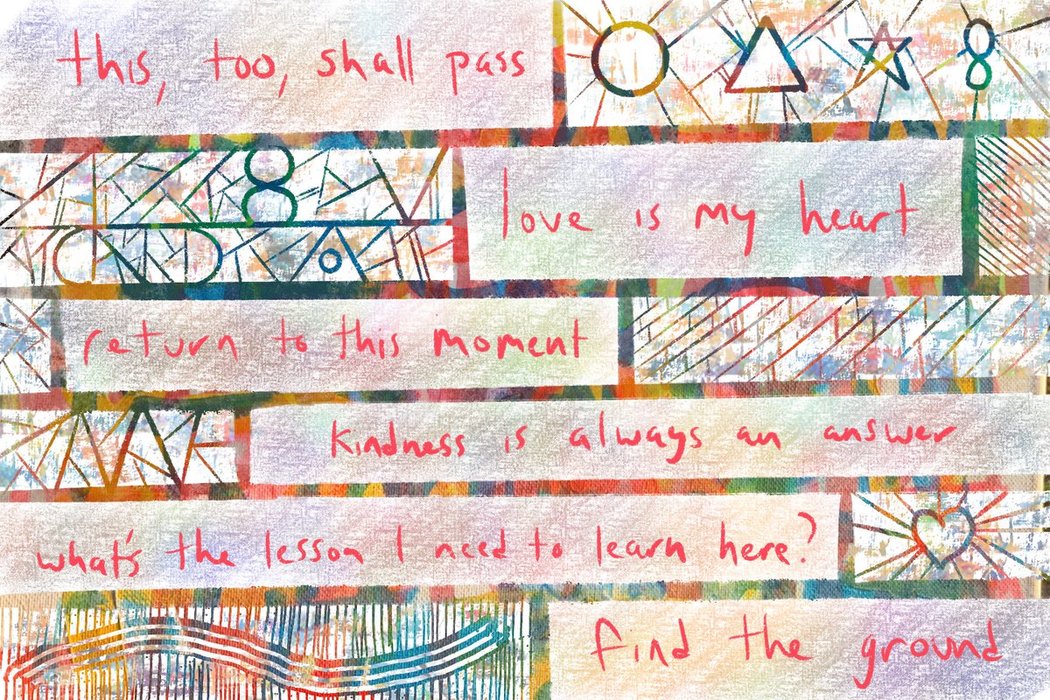 this, too, shall pass
love is my heart
return to this moment
kindness is always an answer
what's the lesson I need to learn here?
find the ground